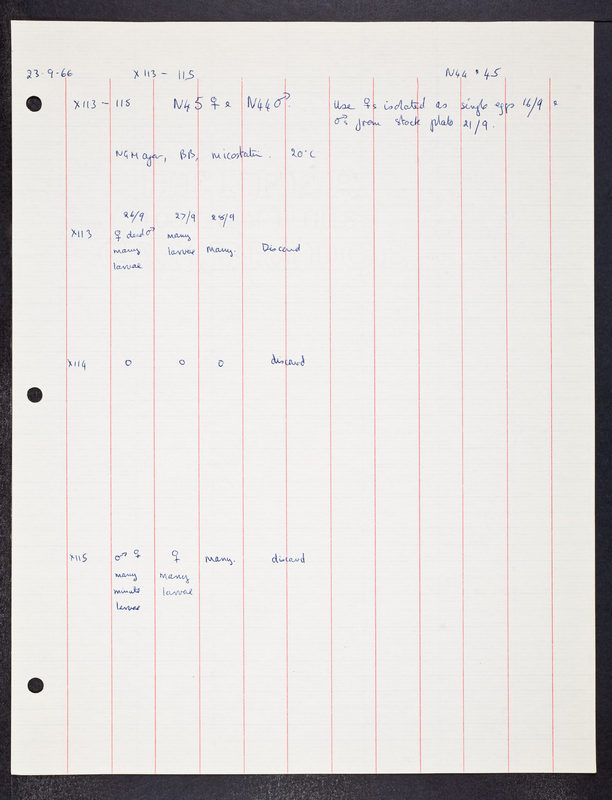 23-9-66 X113 - 115 N44 & 45
X113 - 115 N45 ♀ & N44 ♂ Use ♀s isolated as single eggs 16/9 &
♂s from stock plate 21/9.
NGM agar, BB, micostatin. 20°C
26/9 27/9 28/9
X113 ♀ dead ♂ many
many larvae many. Discard
larvae
X114 0 0 0 discard
X115 ♂ ♀ ♀ many. discard
many many
minute larvae
larvae